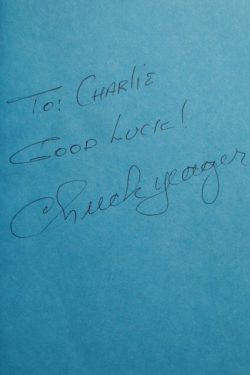 To: CHARLIE
GOOD LUCK!
Chuck yeager